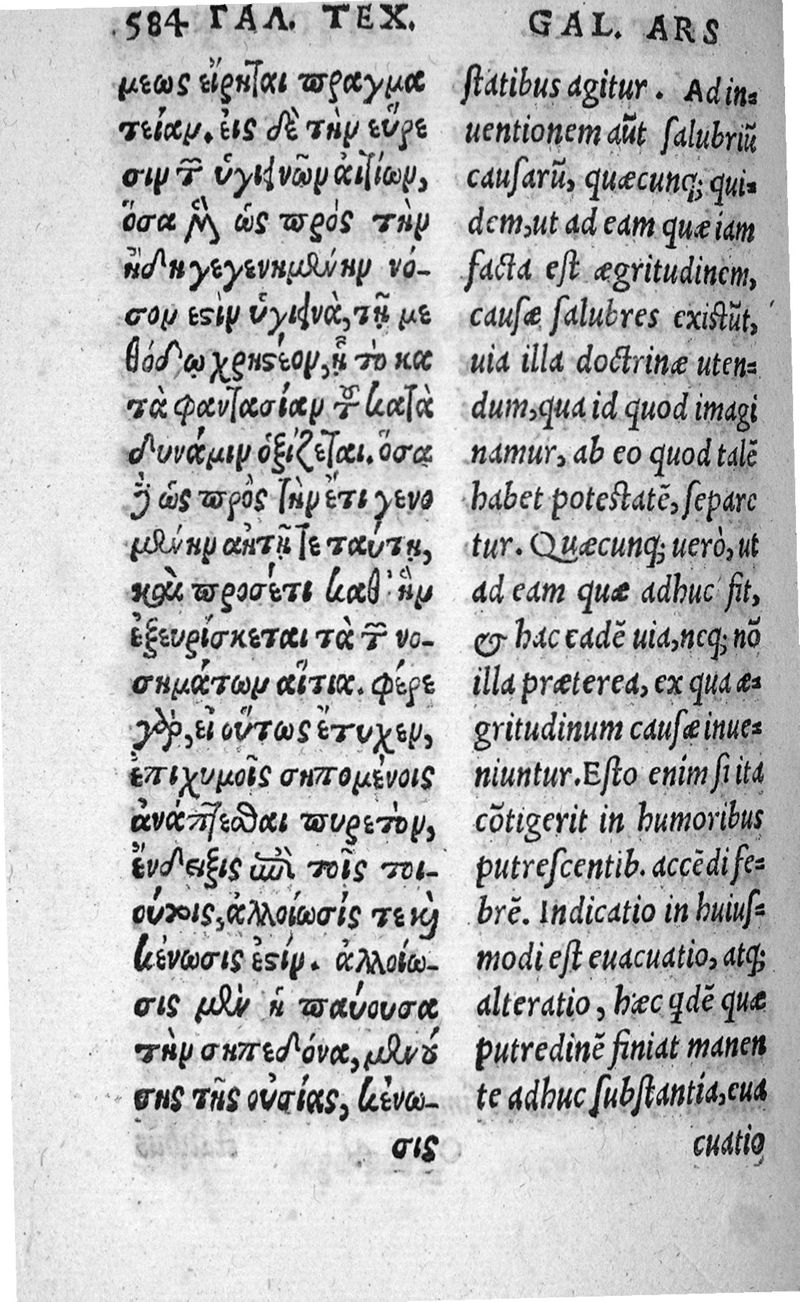 584 ΓΑΛ. ΤΕΧ.
μεως εἴρηται πραγμα
τείαν. εἰς δὲ τὴν εὕρε
σιν τῶν ὑγιεινῶν αἰτίων,
ὅσα μὲν ὡς πρὸς τὴν
ἤδη γεγενημένην νό-
σον ἐστὶν ὑγιεινὰ, τῇ με
θόδῳ χρηστέον, ᾗ τὸ κα
τὰ φαντασίαν τοῦ κατὰ
δυνάμιν ὁρίζεται. ὅσα
δὲ ὡς πρὸς τὴν ἔτι γενο
μένην αὐτῇ τε ταύτῃ,
καὶ προσέτι καθ' ἣν
ἐξευρίσκεται τὰ τῶν νο-
σημάτων αἴτια. φέρε
γὰρ, εἰ οὕτως ἔτυχεν,
ἐπιχυμοῖς σηπομένοις
ἀνάπτεσθαι πυρετὸν,
ἔνδειξις ἐπὶ τοῖς τοι-
ούτοις, ἀλλοίωσίς τε καὶ
κένωσις ἐστίν. ἀλλοίω-
σις μὲν ἡ παύουσα
τὴν σηπεδόνα, μενού
σης τῆς οὐσίας, κένω-
σις
GAL. ARS
statibus agitur. Ad in-
uentionem aũt salubriũ
causarũ, quæcunq; qui-
dem, ut ad eam quæ iam
facta est ægritudinem,
causæ salubres existũt,
uia illa doctrinæ uten-
dum, qua id quod imagi
namur, ab eo quod talẽ
habet potestatẽ, separe
tur. Quæcunq; uerò, ut
ad eam quæ adhuc fit,
& hac eadẽ uia, neq; nõ
illa præterea, ex qua æ-
gritudinum causæ inue-
niuntur. Esto enim si ita
cõtigerit in humoribus
putrescentib. accẽdi fe-
brẽ. Indicatio in huius-
modi est euacuatio, atq;
alteratio, hæc qdẽ quæ
putredinẽ finiat manen
te adhuc substantia, eua
cuatio